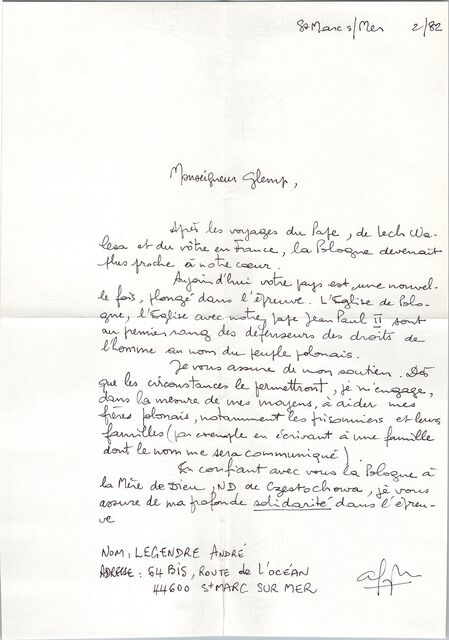 St Marc s/Mer 2/82
Monseigneur Glemp,
Après les voyages du Pape, de Lech Wa-
lesa et du vôtre en France, la Pologne devenait
plus proche à notre cœur.
Aujourd'hui votre pays est, une nouvel-
le fois, plongé dans l'épreuve. L'Eglise de Polo-
gne, l'Eglise avec notre pape Jean Paul II sont
au premier rang des défenseurs des droits de
l'homme au nom du peuple polonais.
Je vous assure de mon soutien. Dès
que les circonstances le permettront, je m'engage,
dans la mesure de mes moyens, à aider mes
frères polonais, notamment les prisonniers et leurs
familles (par exemple en écrivant à une famille
dont le nom me sera communiqué).
En confiant avec vous la Pologne à
la Mère de Dieu, ND de Czestochowa, je vous
assure de ma profonde solidarité dans l'épreu-
ve
NOM : LEGENDRE ANDRÉ
ADRESSE : 64 BIS, ROUTE DE L'OCÉAN
44600 St MARC SUR MER